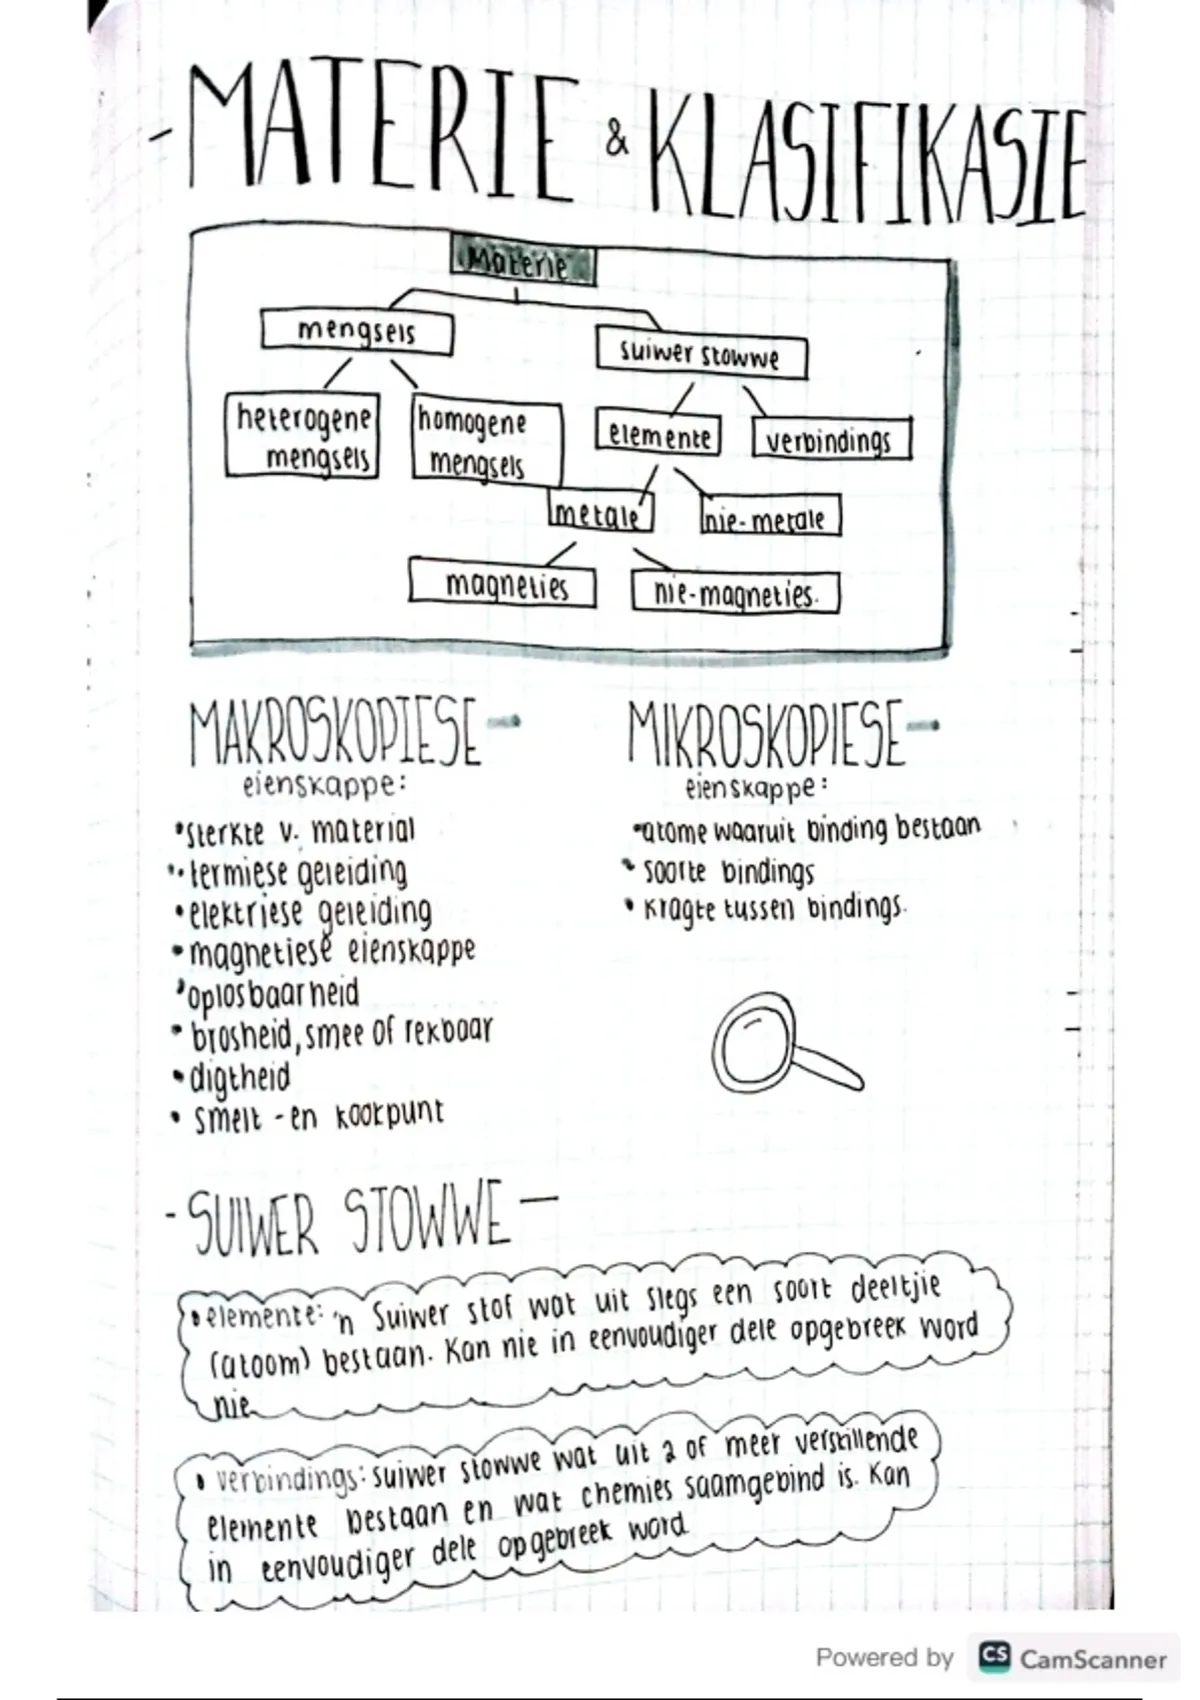 - MATERIE & KLASIFIKASIE
Materie
mengsels
suiwer stowwe
heterogene
mengsels
homogene
mengsels
elemente
verbindings
metale
nie-metale
magneties
nie-magneties.
MAKROSKOPIESE -
eienskappe:
• sterkte v. material
• termiese geleiding
• elektriese geleiding
• magnetiese eienskappe
• oplosbaarheid
• brosheid, smee of rekbaar
• digtheid
• smelt - en kookpunt
MIKROSKOPIESE -
eienskappe:
• atome waaruit binding bestaan
• soorte bindings
• kragte tussen bindings.
- SUIWER STOWWE -
• elemente: 'n Suiwer stof wat uit slegs een soort deeltjie
(atoom) bestaan. Kan nie in eenvoudiger dele opgebreek word
nie.
• verbindings: suiwer stowwe wat uit 2 of meer verskillende
elemente bestaan en wat chemies saamgebind is. Kan
in eenvoudiger dele opgebreek word
Powered by CS CamScanner